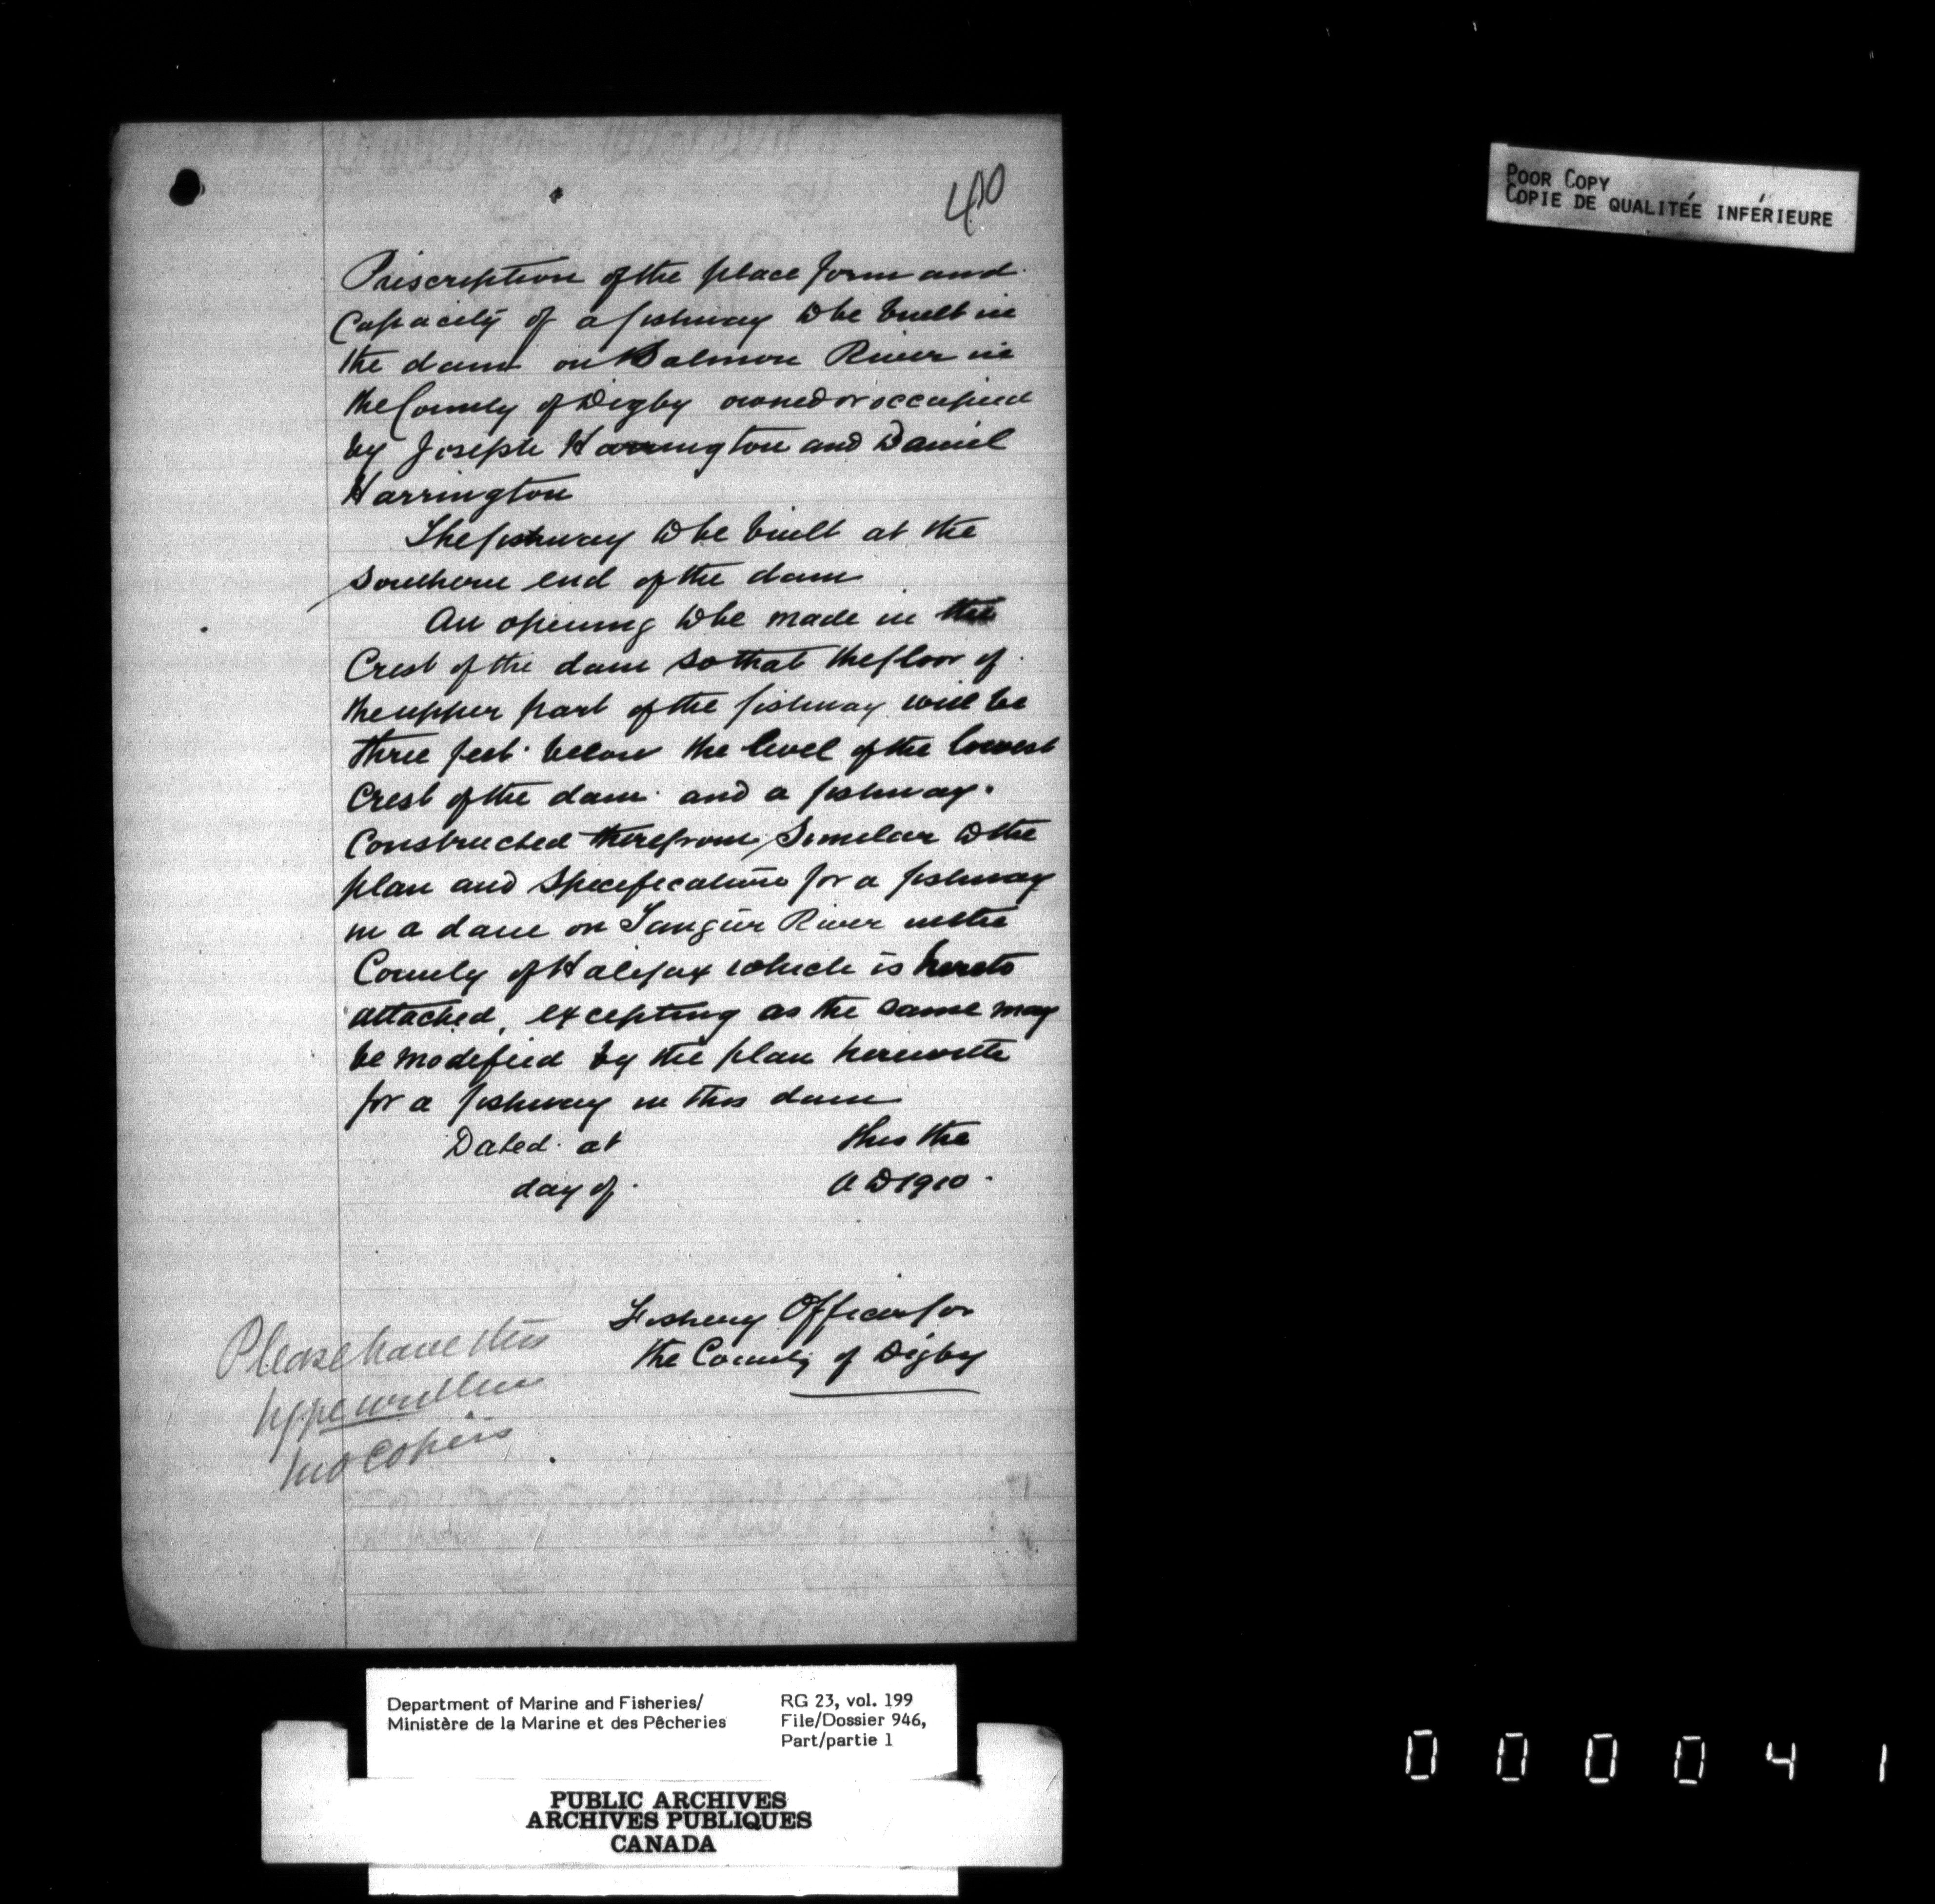 40
POOR COPY
COPIE DE QUALITÉE INFÉRIEURE
Priscription of the place form and
Capacity of a fishway to be built in
the dam on Salmon River in
the County of Digby owned or occupied
by Joseph Harrington and Daniel
Harrington
The fishway to be built at the
southern end of the dam
An opening to be made in the
Crest of the dam so that the floor of
the upper part of the fishway will be
three feet below the level of the lowest
Crest of the dam and a fishway.
Constructed therefrom, Similar to the
plan and Specification for a fishway
in a dam on Tangier River in the
County of Halifax which is hereto
attached, excepting as the same may
be modified by the plan herewith
for a fishway in this dam
Dated at this the
day of A D 1910.
Fishery Officer for
the County of Digby
Please have this
typewritten
two copies
Department of Marine and Fisheries/
Ministère de la Marine et des Pêcheries
RG 23, vol. 199
File/Dossier 946,
Part/partie 1
PUBLIC ARCHIVES
ARCHIVES PUBLIQUES
CANADA
0 0 0 0 4 1